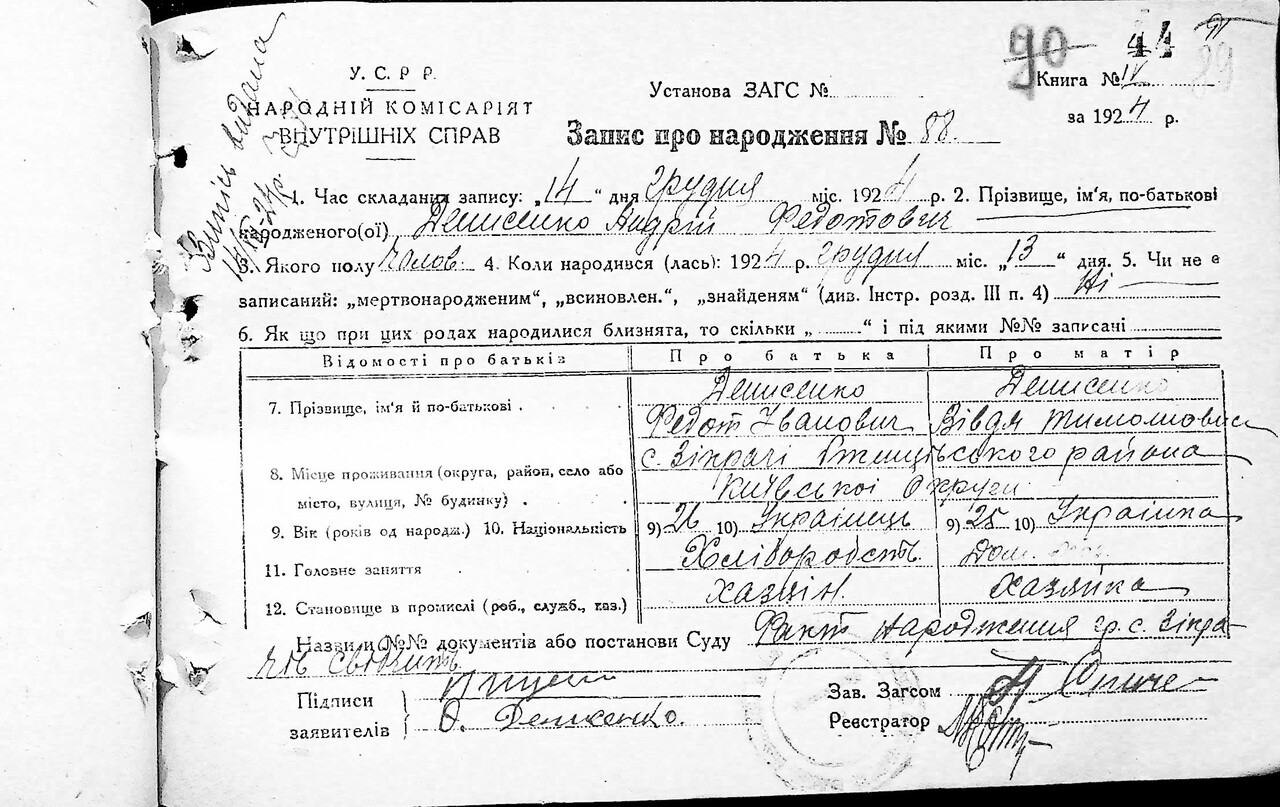 90 44
У. С. Р Р.
НАРОДНІЙ КОМІСАРІЯТ
ВНУТРІШНІХ СПРАВ
Установа ЗАГС №
Книга № IV
за 1924 р.
Запис про народження № 88.
Випись видана
1. Час складання запису: „14“ дня грудня міс. 1924 р. 2. Прізвище, ім'я, по-батькові
народженого(ої) Денисенко Андрій Федотович
3. Якого полу чолов. 4. Коли народився (лась): 1924 р. грудня міс. „13“ дня. 5. Чи не є
записаний: „мертвонародженим“, „всиновлен.“, „знайденям“ (див. Інстр. розд. III п. 4) Ні
6. Як що при цих родах народилися близнята, то скільки „ “ і під якими №№ записані
Відомості про батьків Про батька Про матір
7. Прізвище, ім'я й по-батькові . Денисенко Денисенко
Федот Іванович Вівдя
8. Місце проживання (округа, район, село або с. Зікрачі Ржищівського района
місто, вулиця, № будинку) . Київської Округи
9. Вік (років од народж.) 10. Національність 9) 26 10) Українець 9) 25 10) Українка
11. Головне заняття Хліборобств. Дом.
12. Становище в промислі (роб., служб., каз.) Хазяін. Хазяйка
Назви и №№ документів або постанови Суду Факт народження гр. с. Зікра-
чів свідчить
Підписи
заявителів Ф. Денисенко.
Зав. Загсом
Реєстратор